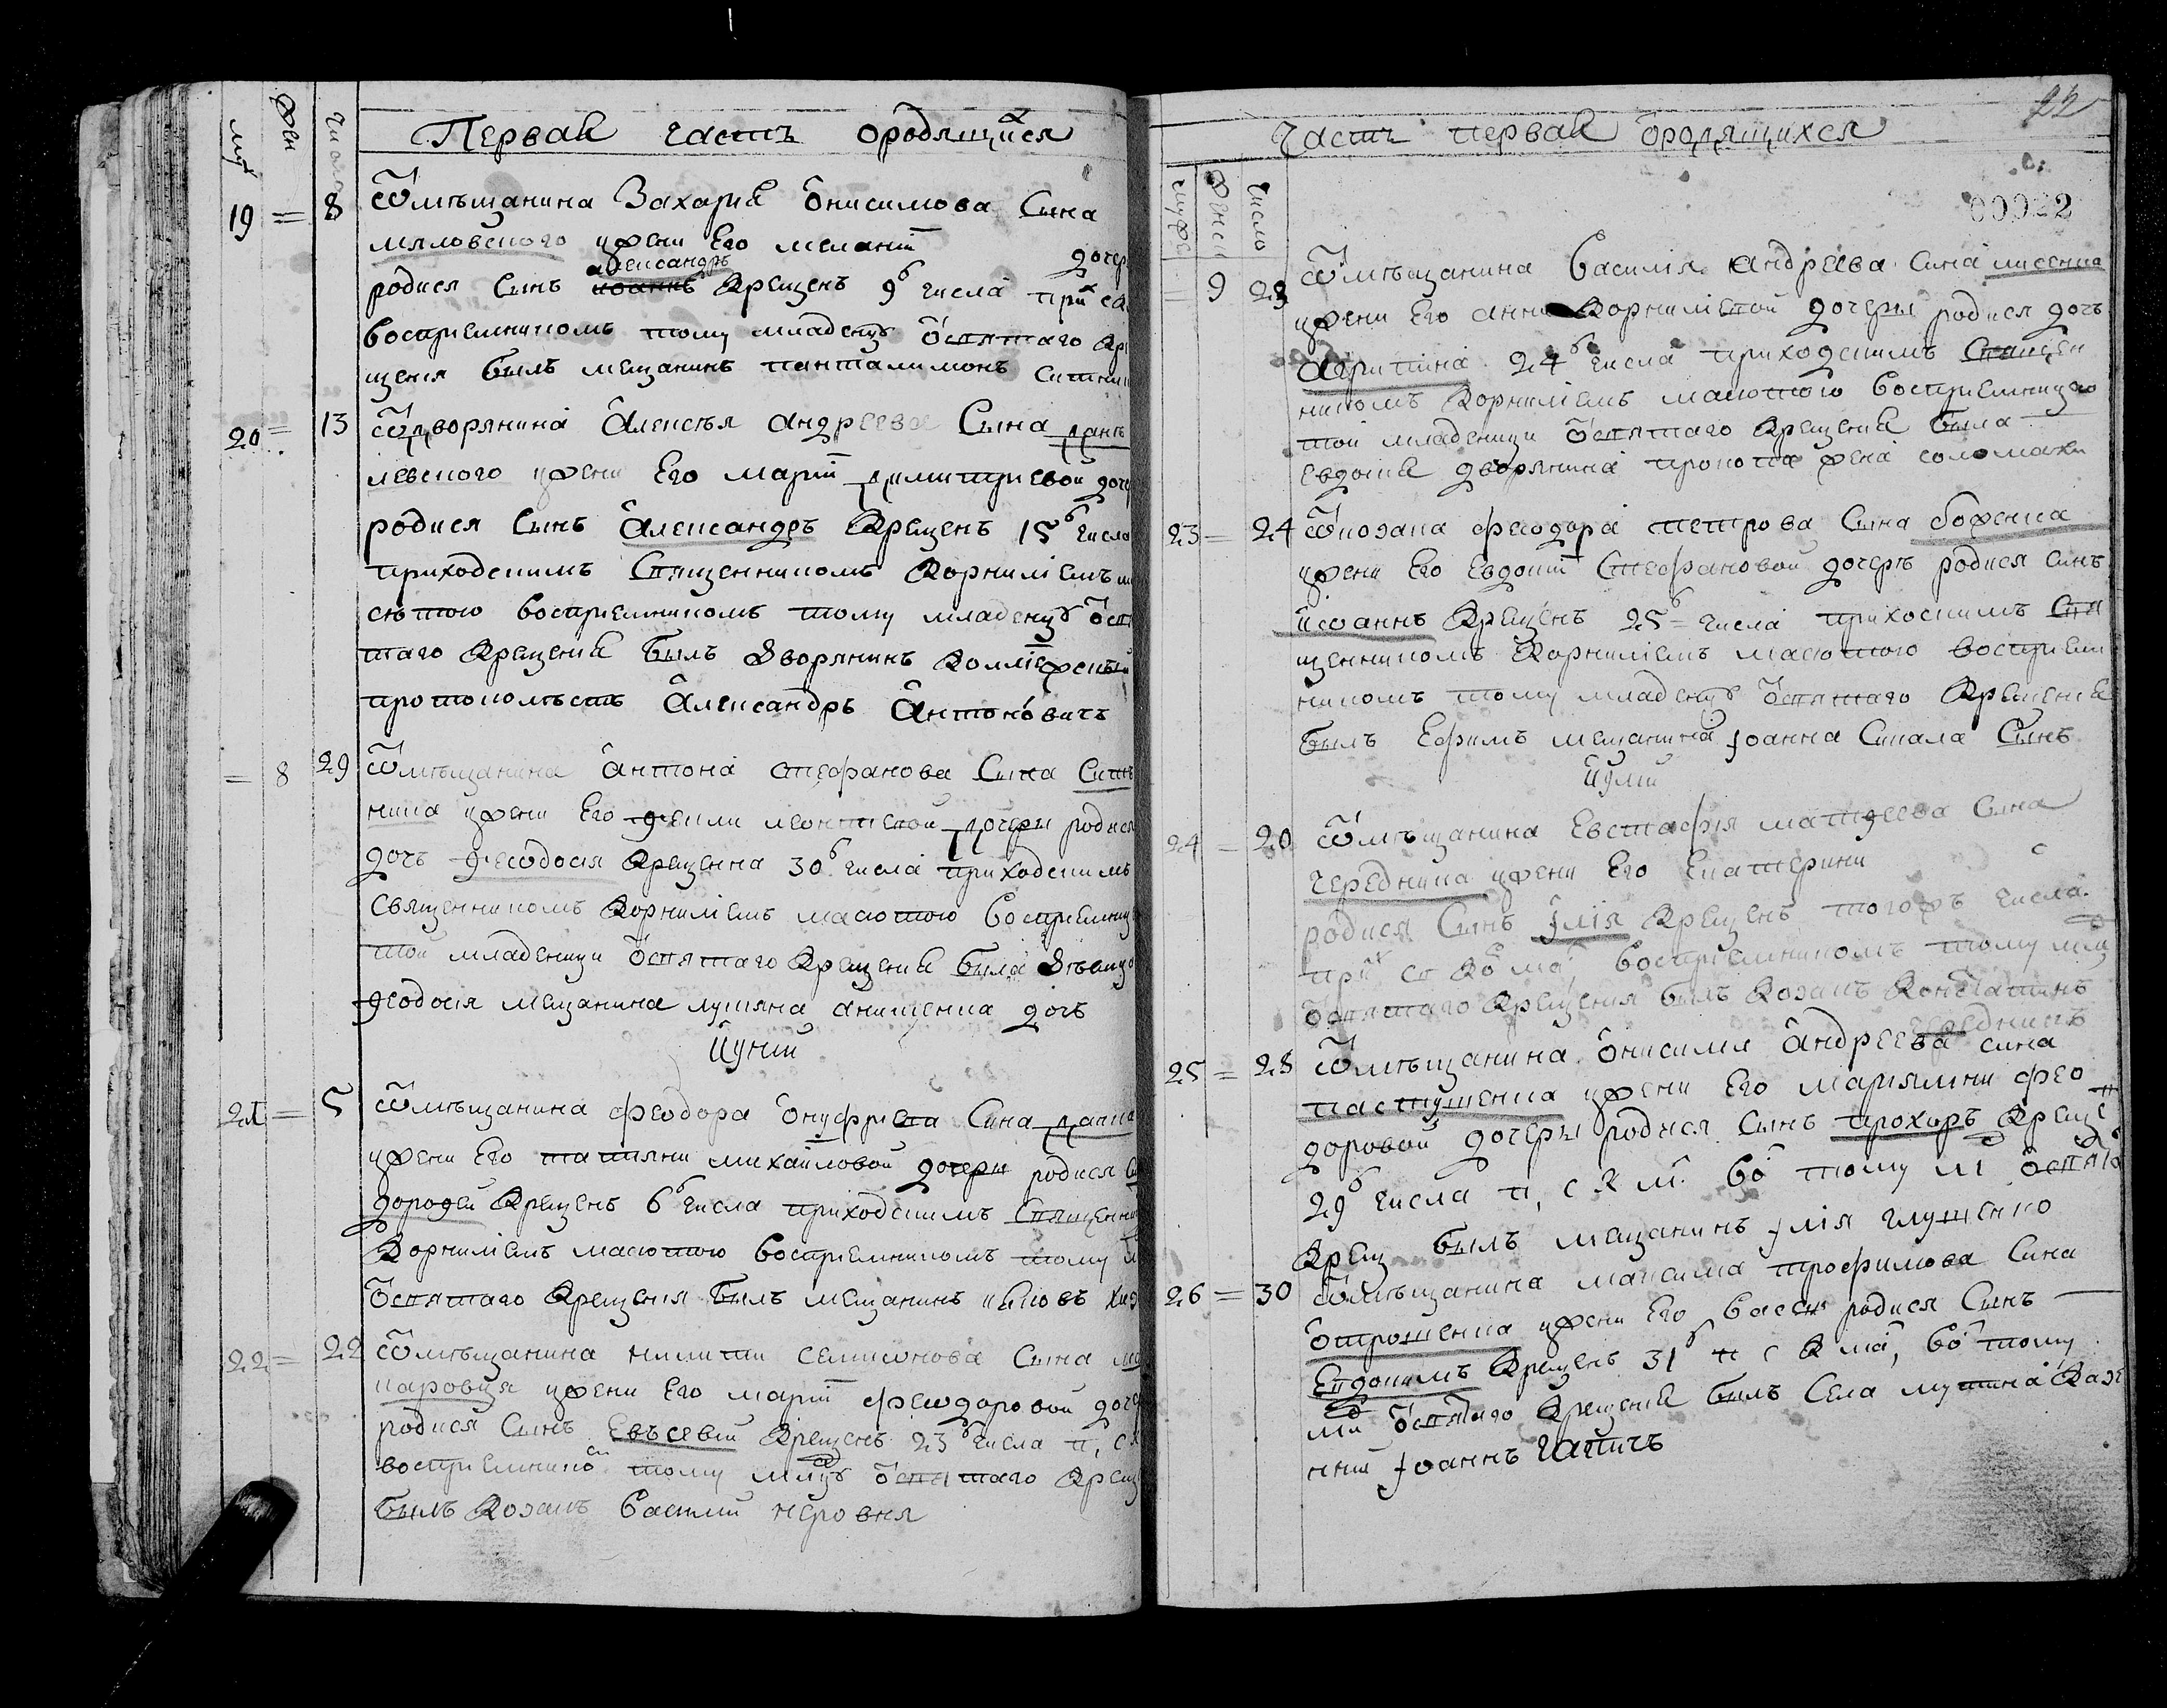 Первая часть ородящихся
муж жен число
19 = 8 Ѿ мѣщанина Захария Онисимова Сина
мяловского и жени Его мелании дочер
родися Синъ иоаннъ александръ Крещенъ 9го числа при
восприемникомъ тому младенцу ѿ святаго Кре
щения былъ мещанинъ пантилимонъ ситник
20 = 13 Ѿ дворянина Алексѣя Андреева Сына данѣ
левского и жени Его марии димитриевой доче
родися Синъ Александръ Крещенъ 15го числа
приходскимъ Священникомъ Корнилиемъ ма
сютою восприемникомъ тому младенцу ѿ свя
таго Крещения былъ дворянинъ Коллежский
протоколистъ Александръ Антоновичъ
= 8 29 Ѿ мѣщанина Антона стефанова Сина Сит
ника и жени Его феклы леонтиевой дочери родися
дочь феодосия Крещенна 30го числа приходскимъ
священникомъ Корнилиемъ масютою восприемниц
той младеници ѿ святаго Крещения была дѣвица
феодосия мещанина лукяна анищенка дочь
Иуний
21 = 5 Ѿ мѣщанина феодора Онуфриева Сина
и жени Его татияни михайловой дочери родися
дорофей Крещенъ 6го числа приходскимъ Священни
Корнилиемъ масютою восприемникомъ тому
ѿ святаго Крещения былъ мещанинъ иаковъ
22 = 22 Ѿ мѣщанина никити семионова Сина ма
каровця и жени Его марии феодоровой доче
родися Синъ Евъсевий Крещенъ 23го числа п, с К
восприемнико тому млцу ѿ святаго Крещ
былъ Козакъ Василий неровня
22
Часть первая ородящихся
00022
муже женск число
= 9 23 Ѿ мѣщанина Василия Андреева Сина лисенка
и жени Его анни Корнилиевой дочери родися дочь
Акрипина 24го числа приходскимъ Священ
никомъ Корнилиемъ масютою восприемницею
той младеници ѿ святаго Крещения была
Евдокия дворянина прокопа жена соломахи
23 = 24 Ѿ козака феодора петрова Сина боженка
и жени Его Евдокии Стефановой дочери родися синъ
иоаннъ Крещенъ 25го числа прихоскимъ Свя
щенникомъ Корнилиемъ масютою восприем
никомъ тому младенцу ѿ святаго Крещения
былъ Ефимъ мещанина Иоанна Сикала Синъ
Иулий
24 = 20 Ѿ мѣщанина Евстафия матфеева Сина
чередника и жени Его Екатерини
родися Синъ Илия Крещенъ тогожъ числа
при с Ко ма, восприемникомъ тому мла
ѿ святаго Крещения былъ Козакъ Константинъ
чередникъ
25 = 28 Ѿ мѣщанина Онисима Андреева сина
пастушенка и жени Его мариямни фео
доровой дочери родися Синъ прохоръ Креще
29го числа п, с К м. во тому м ѿ свята
Крещ былъ мещанинъ Илия глушенко
26 = 30 Ѿ мѣщанина максима трофимова Сина
отрошенка и жени Его Васси родися Синъ
Евдокимъ Крещенъ 31го п с К ма, во тому
мл ѿ святаго Крещения былъ Села мутина Казе
нний Иоаннъ гапичъ